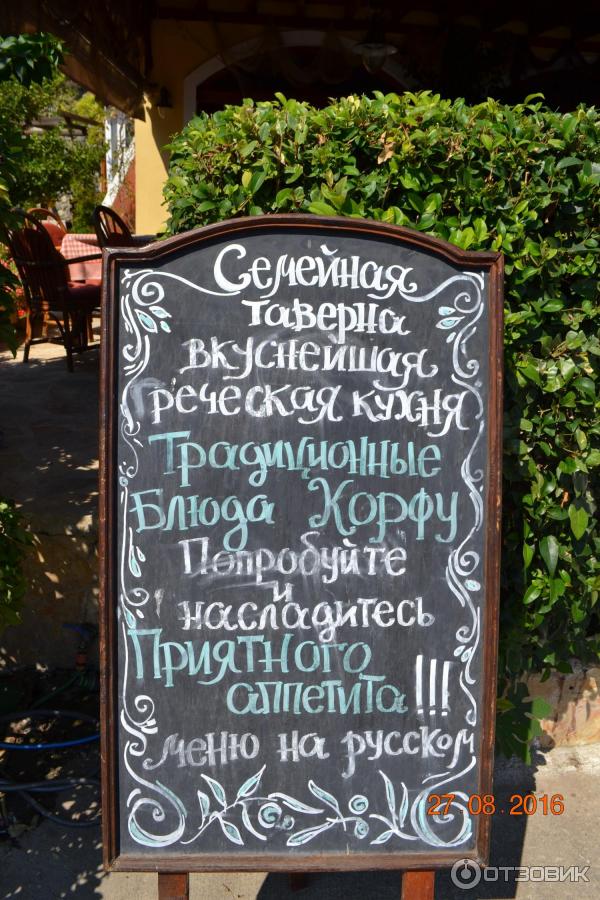 Семейная
таверна
вкуснейшая
греческая кухня
Традиционные
Блюда Корфу
Попробуйте
и
насладитесь
Приятного
аппетита!!!
меню на русском
27 08 2016
ОТЗОВИК